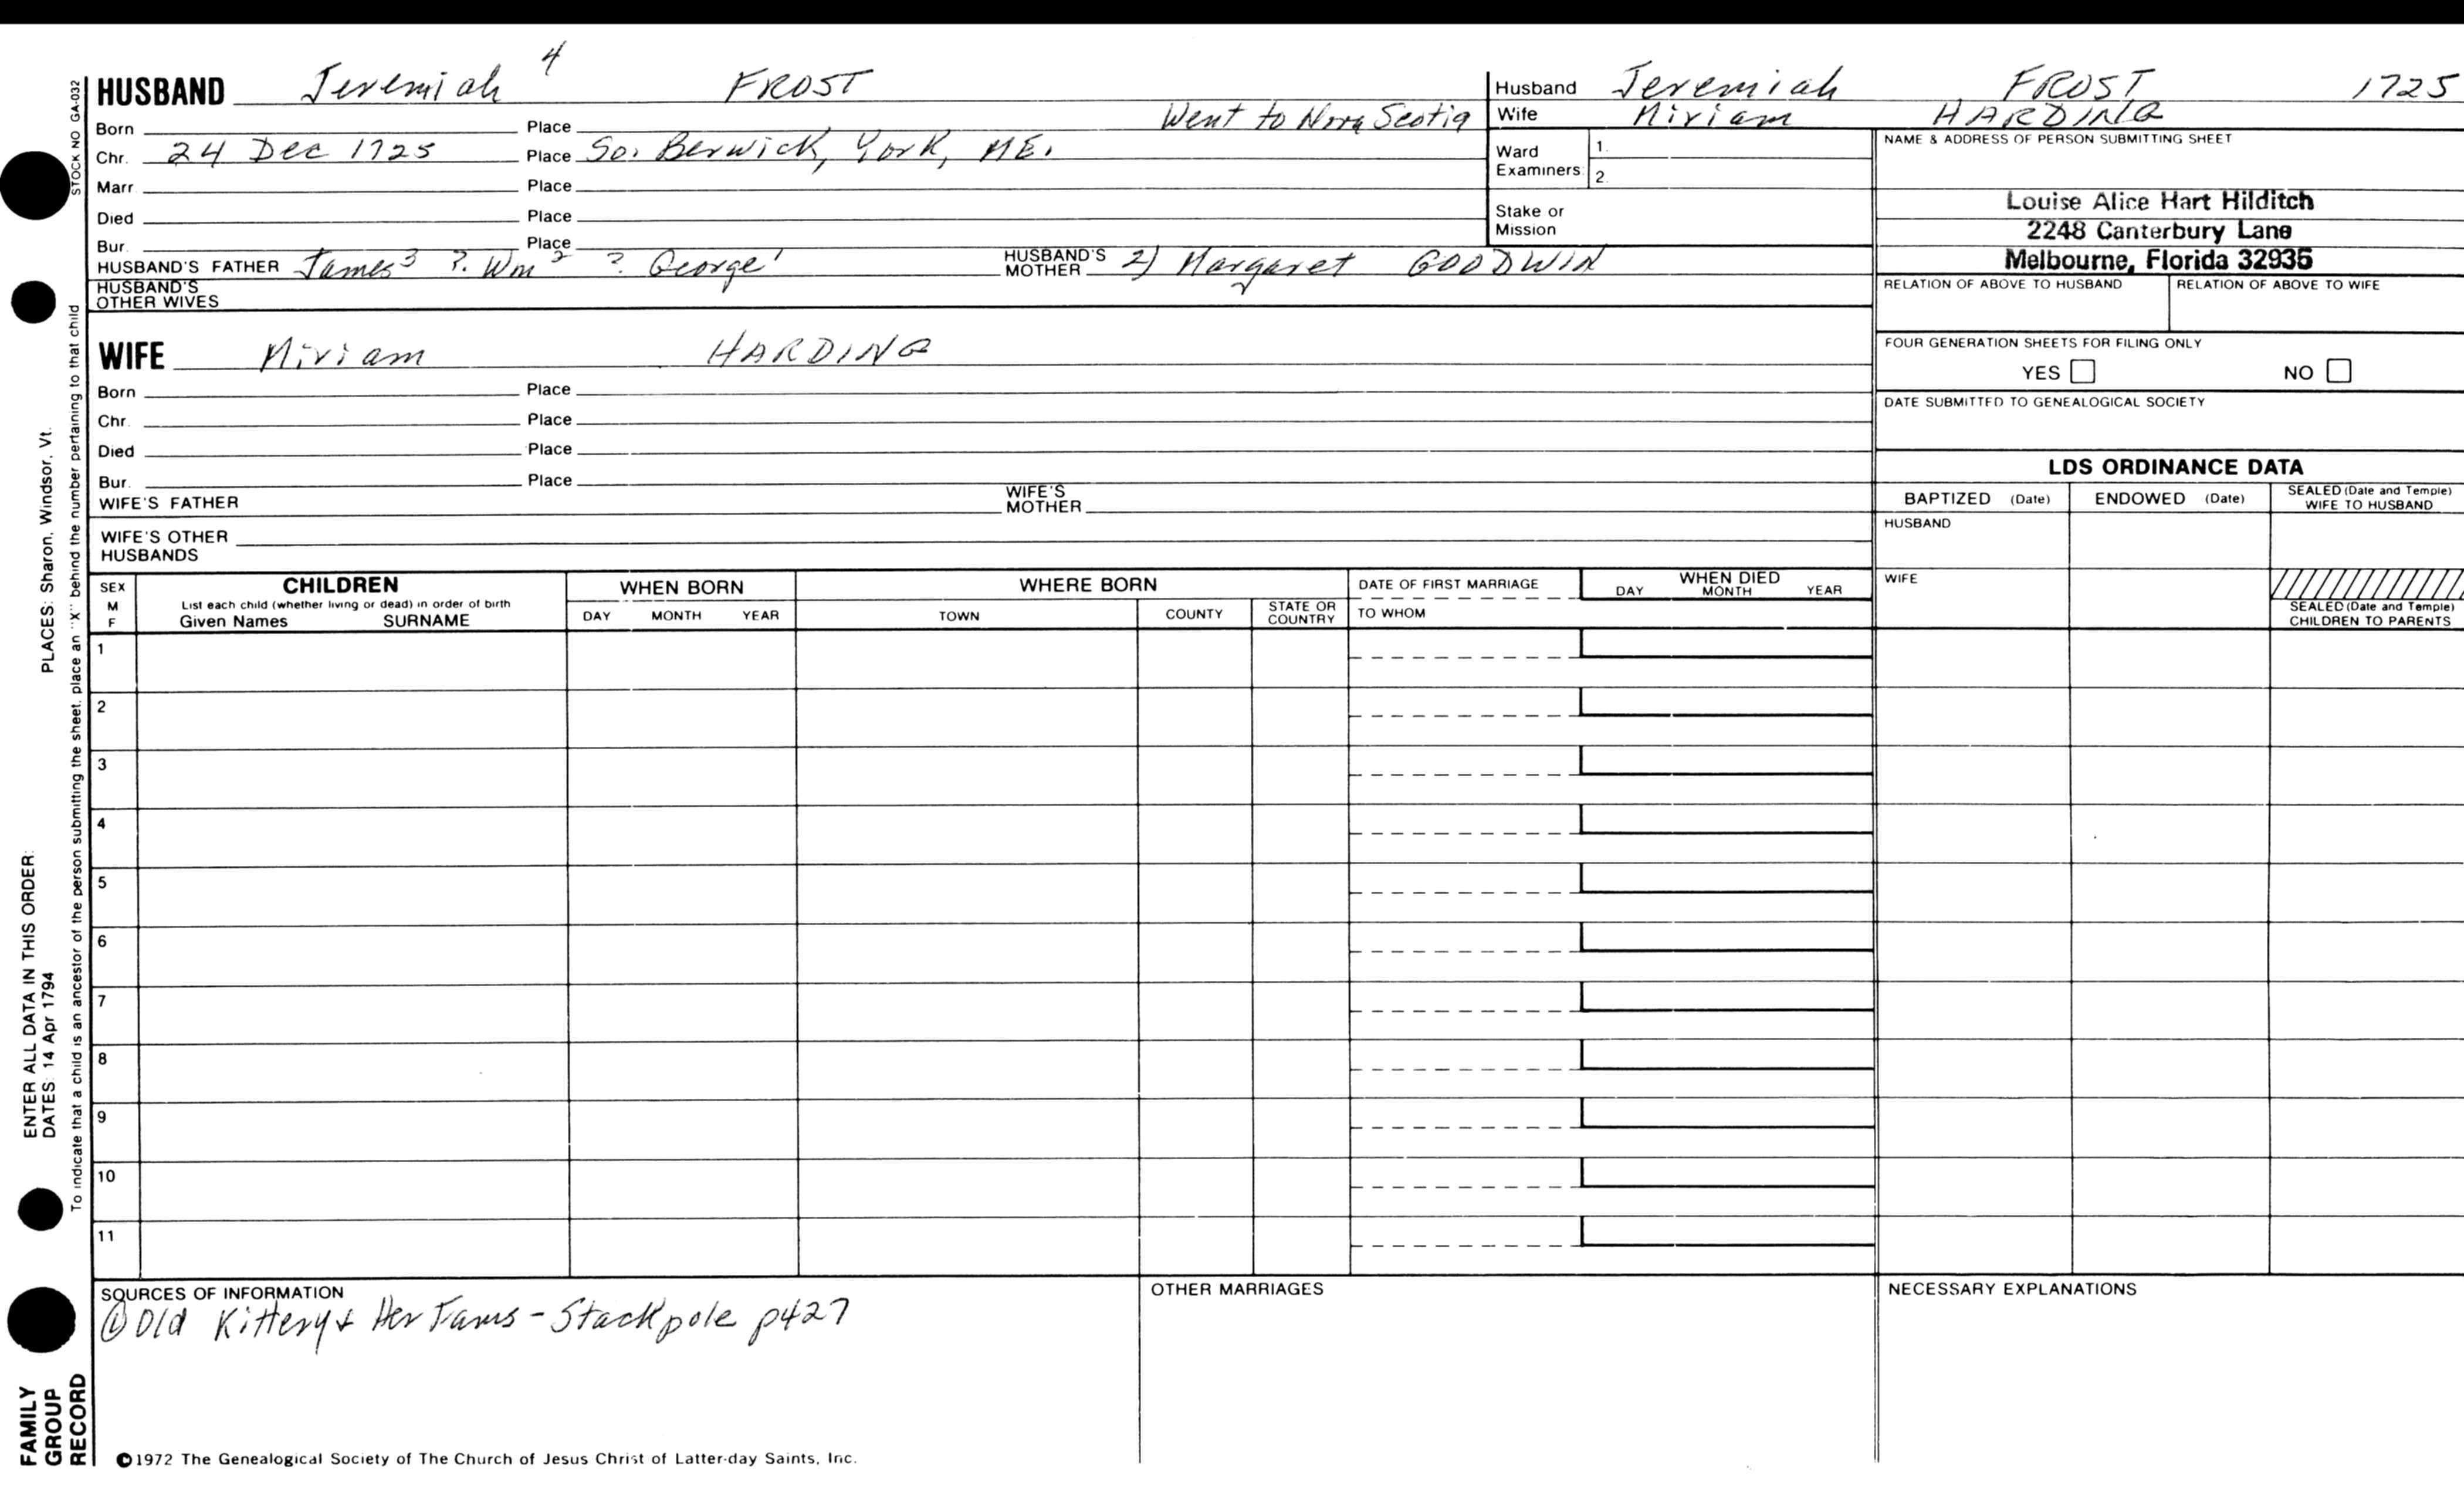 HUSBAND Jeremiah 4 FROST
Born Place Went to Nova Scotia
Chr. 24 Dec 1725 Place So. Berwick, York, ME.
Marr. Place
Died Place
Bur. Place
HUSBAND'S FATHER James3 ?. Wm2 ?. George1 HUSBAND'S MOTHER 2) Margaret GOODWIN
HUSBAND'S OTHER WIVES
Husband Jeremiah FROST 1725
Wife Miriam HARDING
Ward Examiners: 1.
2.
Stake or Mission
NAME & ADDRESS OF PERSON SUBMITTING SHEET
Louise Alice Hart Hilditch
2248 Canterbury Lane
Melbourne, Florida 32935
RELATION OF ABOVE TO HUSBAND RELATION OF ABOVE TO WIFE
FOUR GENERATION SHEETS FOR FILING ONLY
YES NO
DATE SUBMITTED TO GENEALOGICAL SOCIETY
WIFE Miriam HARDING
Born Place
Chr. Place
Died Place
Bur. Place
WIFE'S FATHER WIFE'S MOTHER
WIFE'S OTHER HUSBANDS
LDS ORDINANCE DATA
BAPTIZED (Date) ENDOWED (Date) SEALED (Date and Temple) WIFE TO HUSBAND
HUSBAND
WIFE
SEALED (Date and Temple) CHILDREN TO PARENTS
SEX M F
CHILDREN
List each child (whether living or dead) in order of birth
Given Names SURNAME
WHEN BORN
DAY MONTH YEAR
WHERE BORN
TOWN COUNTY STATE OR COUNTRY
DATE OF FIRST MARRIAGE
TO WHOM
WHEN DIED
DAY MONTH YEAR
1
2
3
4
5
6
7
8
9
10
11
SOURCES OF INFORMATION
① Old Kittery & Her Fams - Stackpole p427
OTHER MARRIAGES
NECESSARY EXPLANATIONS
©1972 The Genealogical Society of The Church of Jesus Christ of Latter-day Saints, Inc.
STOCK NO GA-032
To indicate that a child is an ancestor of the person submitting the sheet, place an "X" behind the number pertaining to that child
ENTER ALL DATA IN THIS ORDER:
DATES: 14 Apr 1794 PLACES: Sharon, Windsor, Vt.
FAMILY
GROUP
RECORD